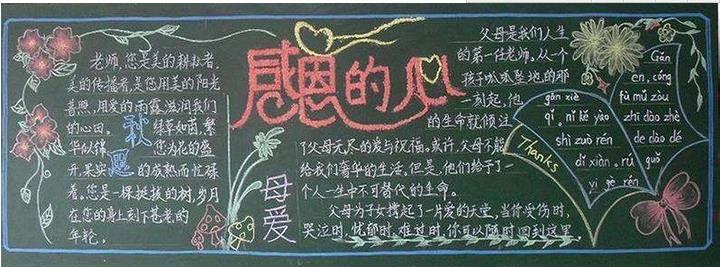 感恩的心
老师,您是美的耕耘者,
美的传播者,是您用美的阳光
普照,用爱的雨露滋润我们
的心田。
绿草如茵,繁
华似锦
秋
恩
您为花的盛
开,果实的成熟而忙碌
着。您是一棵挺拔的树,岁月
在您的身上刻下苍老的
年轮。
母爱
父母是我们人生
的第一任老师,从一个
孩子呱呱坠地的那
一刻起,他
的生命就倾注
了父母无尽的爱与祝福。或许,父母不能
给我们奢华的生活,但是,他们给予了一
个人一生中不可替代的生命。
父母为子女撑起了一片爱的天堂,当你受伤时,
哭泣时,忧郁时,难过时,你可以随时回到这里
Thanks
Gǎn
en, cóng
fù mǔ zòu
zhī dào zhè
de dào dé
rú guǒ
gǎn xiè
qí, nǐ kě yào
shì zuò rén
dǐ xiàn,
yí gè rén